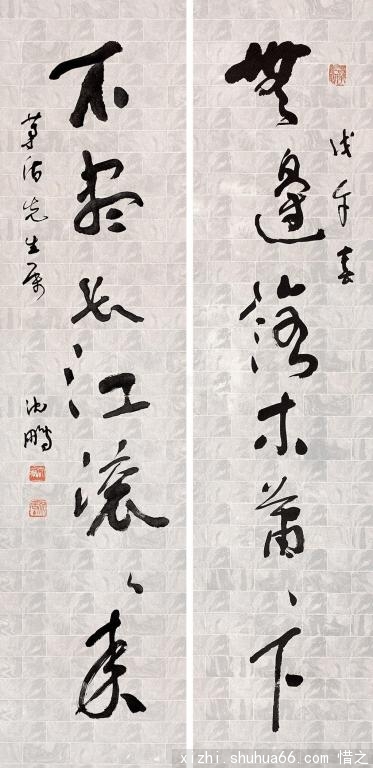 春
無邊落木蕭〻下
不盡長江滚〻来
先生屬
沈鵬
xizhi.shuhua66.com 惜之